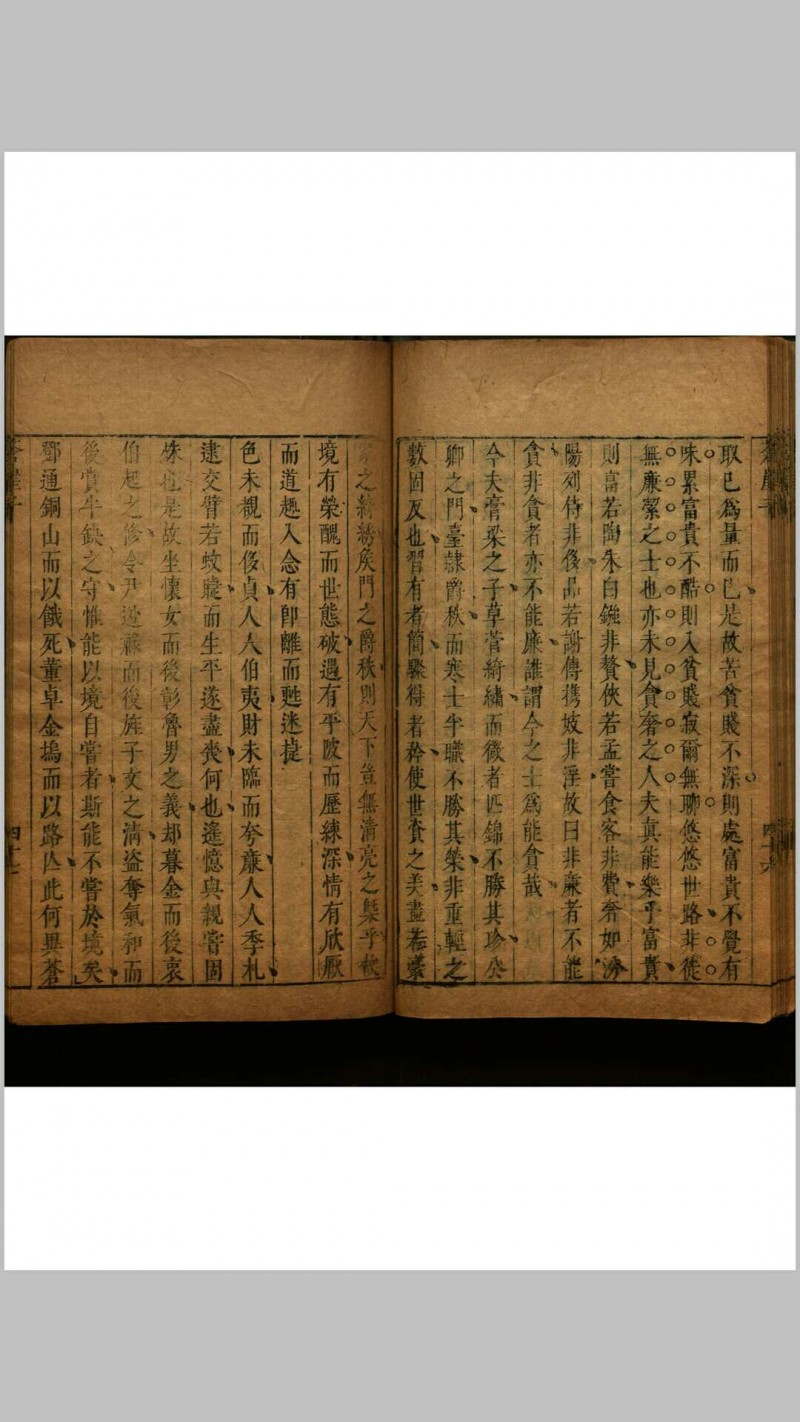 取已爲量而已是故苦貧賤不深則處富貴不覺有
味累富貴不酷則入貧賤寂爾無聊悠悠世路非徒
無廉潔之士也亦未見貪奢之人夫真能樂乎富貴
則富若陶朱白鏹非贅俠若孟嘗食客非費奢如汾
陽列侍非侈品若謝傅携妓非淫故曰非廉者不能
貪非貪者亦不能廉誰謂今之士爲能貪哉
今夫膏粱之子草菅綺繡而微者匹錦不勝其珍公
卿之門臺隷爵秩而寒士半職不勝其榮非重輕之
數固反也習有者簡驟得者矜使世貪之美盡若
之綺紈矦門之爵秩則天下豈無清亮之槩乎
境有榮醜而世態破遇有平陂而歷練深情有欣厭
而道趣入念有即離而甦迷捷
色未親而侈貞人人伯夷財未臨而夸廉人人季札
逮交臂若蚊聚而生平遂盡喪何也遙憶與親嘗固
殊也是故坐懷女而後彰魯男之義却暮金而後衷
伯起之修令尹遊蘇而後旌子文之清盜奪氣和而
後賞牛缺之守惟能以境自嘗者斯能不嘗於境矣
鄧通銅山而以餓死董卓金塢而以路亾此何異蒼
蒼崖子
四十六
蒼崖子
四十七